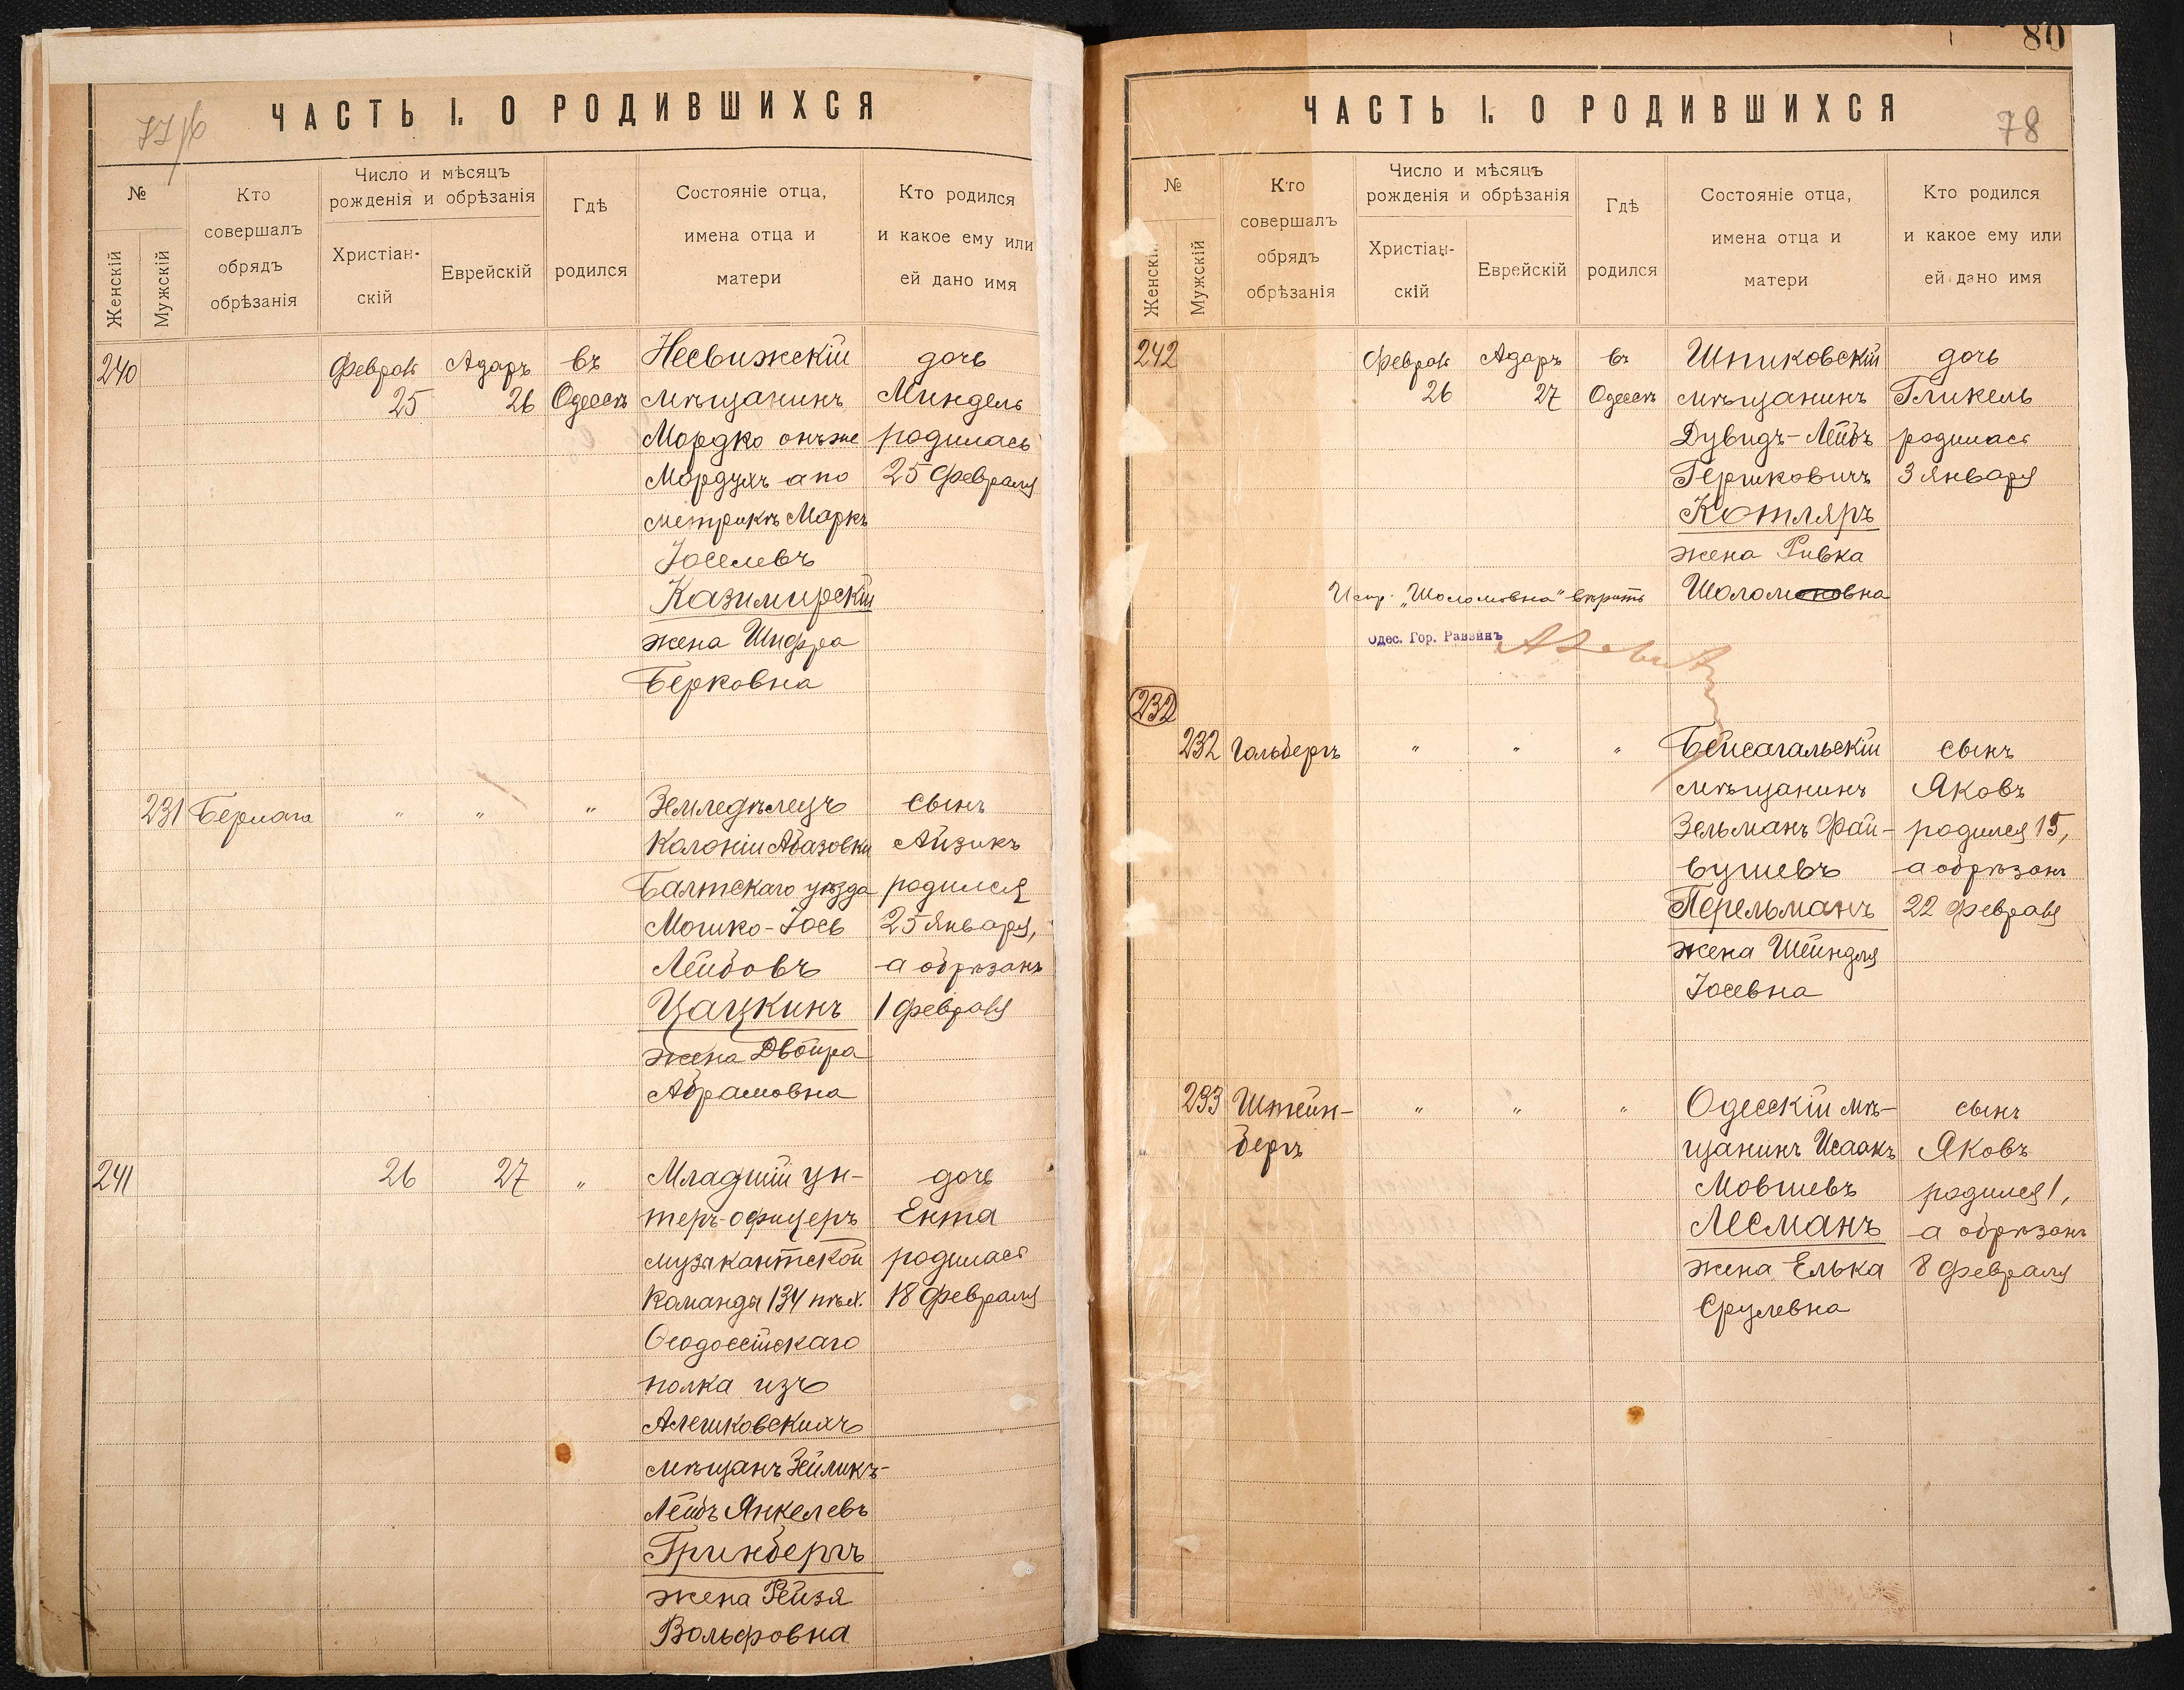 ЧАСТЬ I. О РОДИВШИХСЯ
№
Женскій
Мужскій
Кто
совершалъ
обрядъ
обрѣзанія
Число и мѣсяцъ
рожденія и обрѣзанія
Христіан-
скій
Еврейскій
Гдѣ
родился
Состояніе отца,
имена отца и
матери
Кто родился
и какое ему или
ей дано имя
240
Февраль
25
Адаръ
26
въ
Одессѣ
Несвижскій
мѣщанинъ
Мордко онъ же
Мордухъ а по
метрикѣ Маркъ
Іоселевъ
Казимирскій
жена Шифра
Берковна
дочь
Миндель
родилась
25 Февраля
231
Бермага
"
"
"
Земледѣлецъ
Колоніи Абазовки
Балтскаго уѣзда
Мошко-Іось
Лейбовъ
Цацкинъ
жена Двойра
Абрамовна
сынъ
Айзикъ
родился
25 Января,
а обрѣзанъ
1 Февраля
241
26
27
"
Младшій ун-
теръ-офицеръ
музыкантской
Команды 134 пѣх.
Ѳеодосійскаго
полка изъ
Алешковскихъ
мѣщанъ Зейликъ-
Лейбъ Янкелевъ
Гринбергъ
жена Рейзя
Вольфовна
дочь
Ента
родилась
18 Февраля
80
ЧАСТЬ I. О РОДИВШИХСЯ
78
№
Женскій
Мужскій
Кто
совершалъ
обрядъ
обрѣзанія
Число и мѣсяцъ
рожденія и обрѣзанія
Христіан-
скій
Еврейскій
Гдѣ
родился
Состояніе отца,
имена отца и
матери
Кто родился
и какое ему или
ей дано имя
242
Февраль
26
Адаръ
27
въ
Одессѣ
Шпиковскій
мѣщанинъ
Дувидъ-Лейбъ
Гершковичъ
Котляръ
жена Ривка
Шоломоновна
дочь
Гликель
родилась
3 Января
Испр. "Шоломовна" вѣрить
Одес. Гор. Раввинъ
232
232
Гольдбергъ
"
"
"
Бейсагальскій
мѣщанинъ
Зельманъ Фай-
вушевъ
Перельманъ
жена Шейндля
Іосевна
сынъ
Яковъ
родился 15,
а обрѣзанъ
22 Февраля
233
Штейн-
бергъ
"
"
"
Одесскій мѣ-
щанинъ Исаакъ
Мовшевъ
Лесманъ
жена Елька
Срулевна
сынъ
Яковъ
родился 1,
а обрѣзанъ
8 Февраля